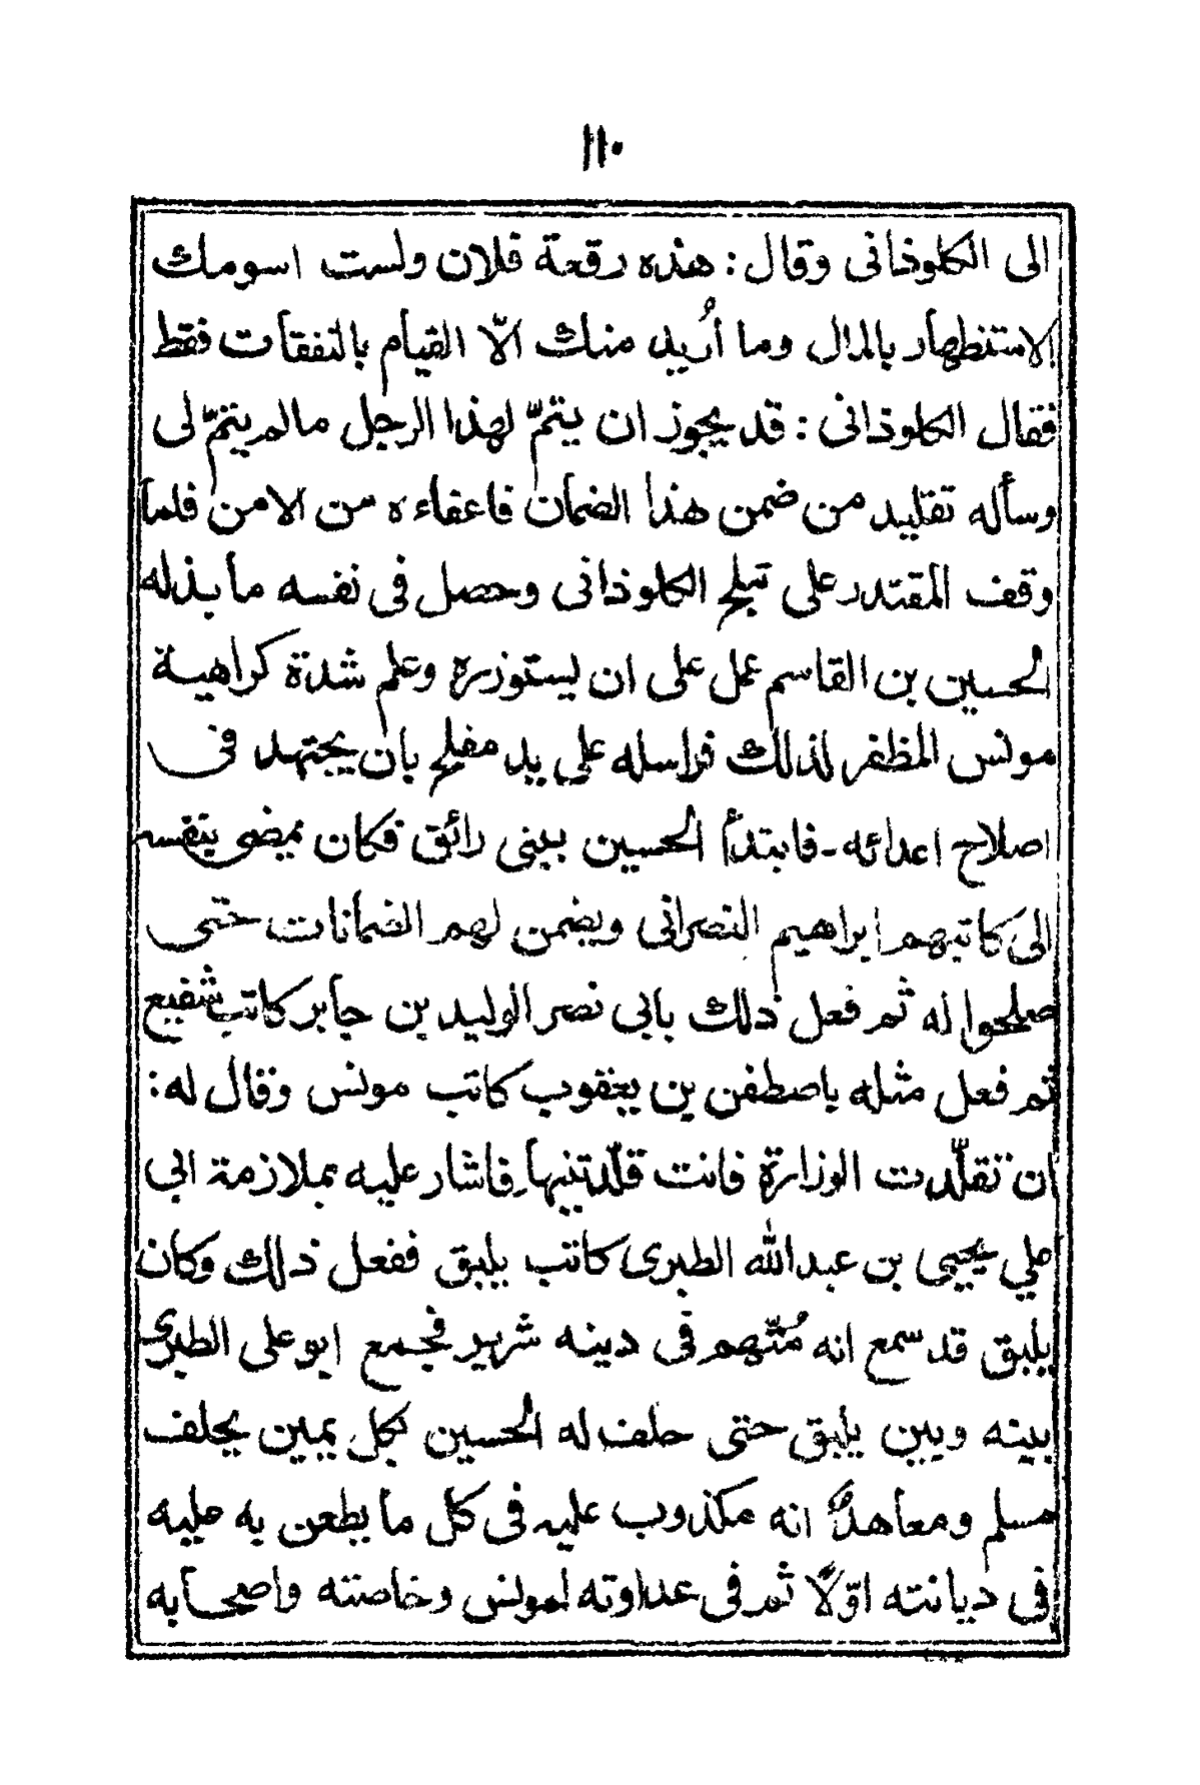 ١١٠
الى الكلوذانى وقال : هذه رقعة فلان ولست اسومك
الاستظهار بالمال وما أُريد منك الّا القيام بالنفقات فقط
فقال الكلوذانى : قد يجوز ان يتمّ لهذا الرجل مالم يتمّ لى
وسأله تقليد من ضمن هذا الضمان فاعفاء ه من الامن فلما
وقف المقتدر على تبلح الكلوذانى وحصل فى نفسه ما بذله
الحسين بن القاسم عمل على ان يستوزره وعلم شدة كراهية
مونس المظفر لذلك فراسله على يد مفلح بان يجتهد فى
اصلاح اعدائه ـ فابتدأ الحسين ببنى رائق فكان يمضى بنفسه
الى كاتبهم ابراهيم النصرانى ويضمن لهم الضمانات حتى
صلحوا له ثم فعل ذلك بابى نصر الوليد بن جابر كاتب شفيع
ثم فعل مثله باصطفن بن يعقوب كاتب مونس وقال له :
ان تقلّدت الوزارة فانت قلّدتنيها فاشار عليه بملازمة ابى
على يحيى بن عبدالله الطبرى كاتب يلبق ففعل ذلك وكان
يلبق قد سمع انه مُتّهم فى دينه شرير فجمع ابو على الطبرى
بينه وبين يلبق حتى حلف له الحسين بكل يمين يحلف
مسلم ومعاهدٌ انه مكذوب عليه فى كل ما يطعن به عليه
فى ديانته اوّلًا ثم فى عداوته لمونس وخاصته واصحابه